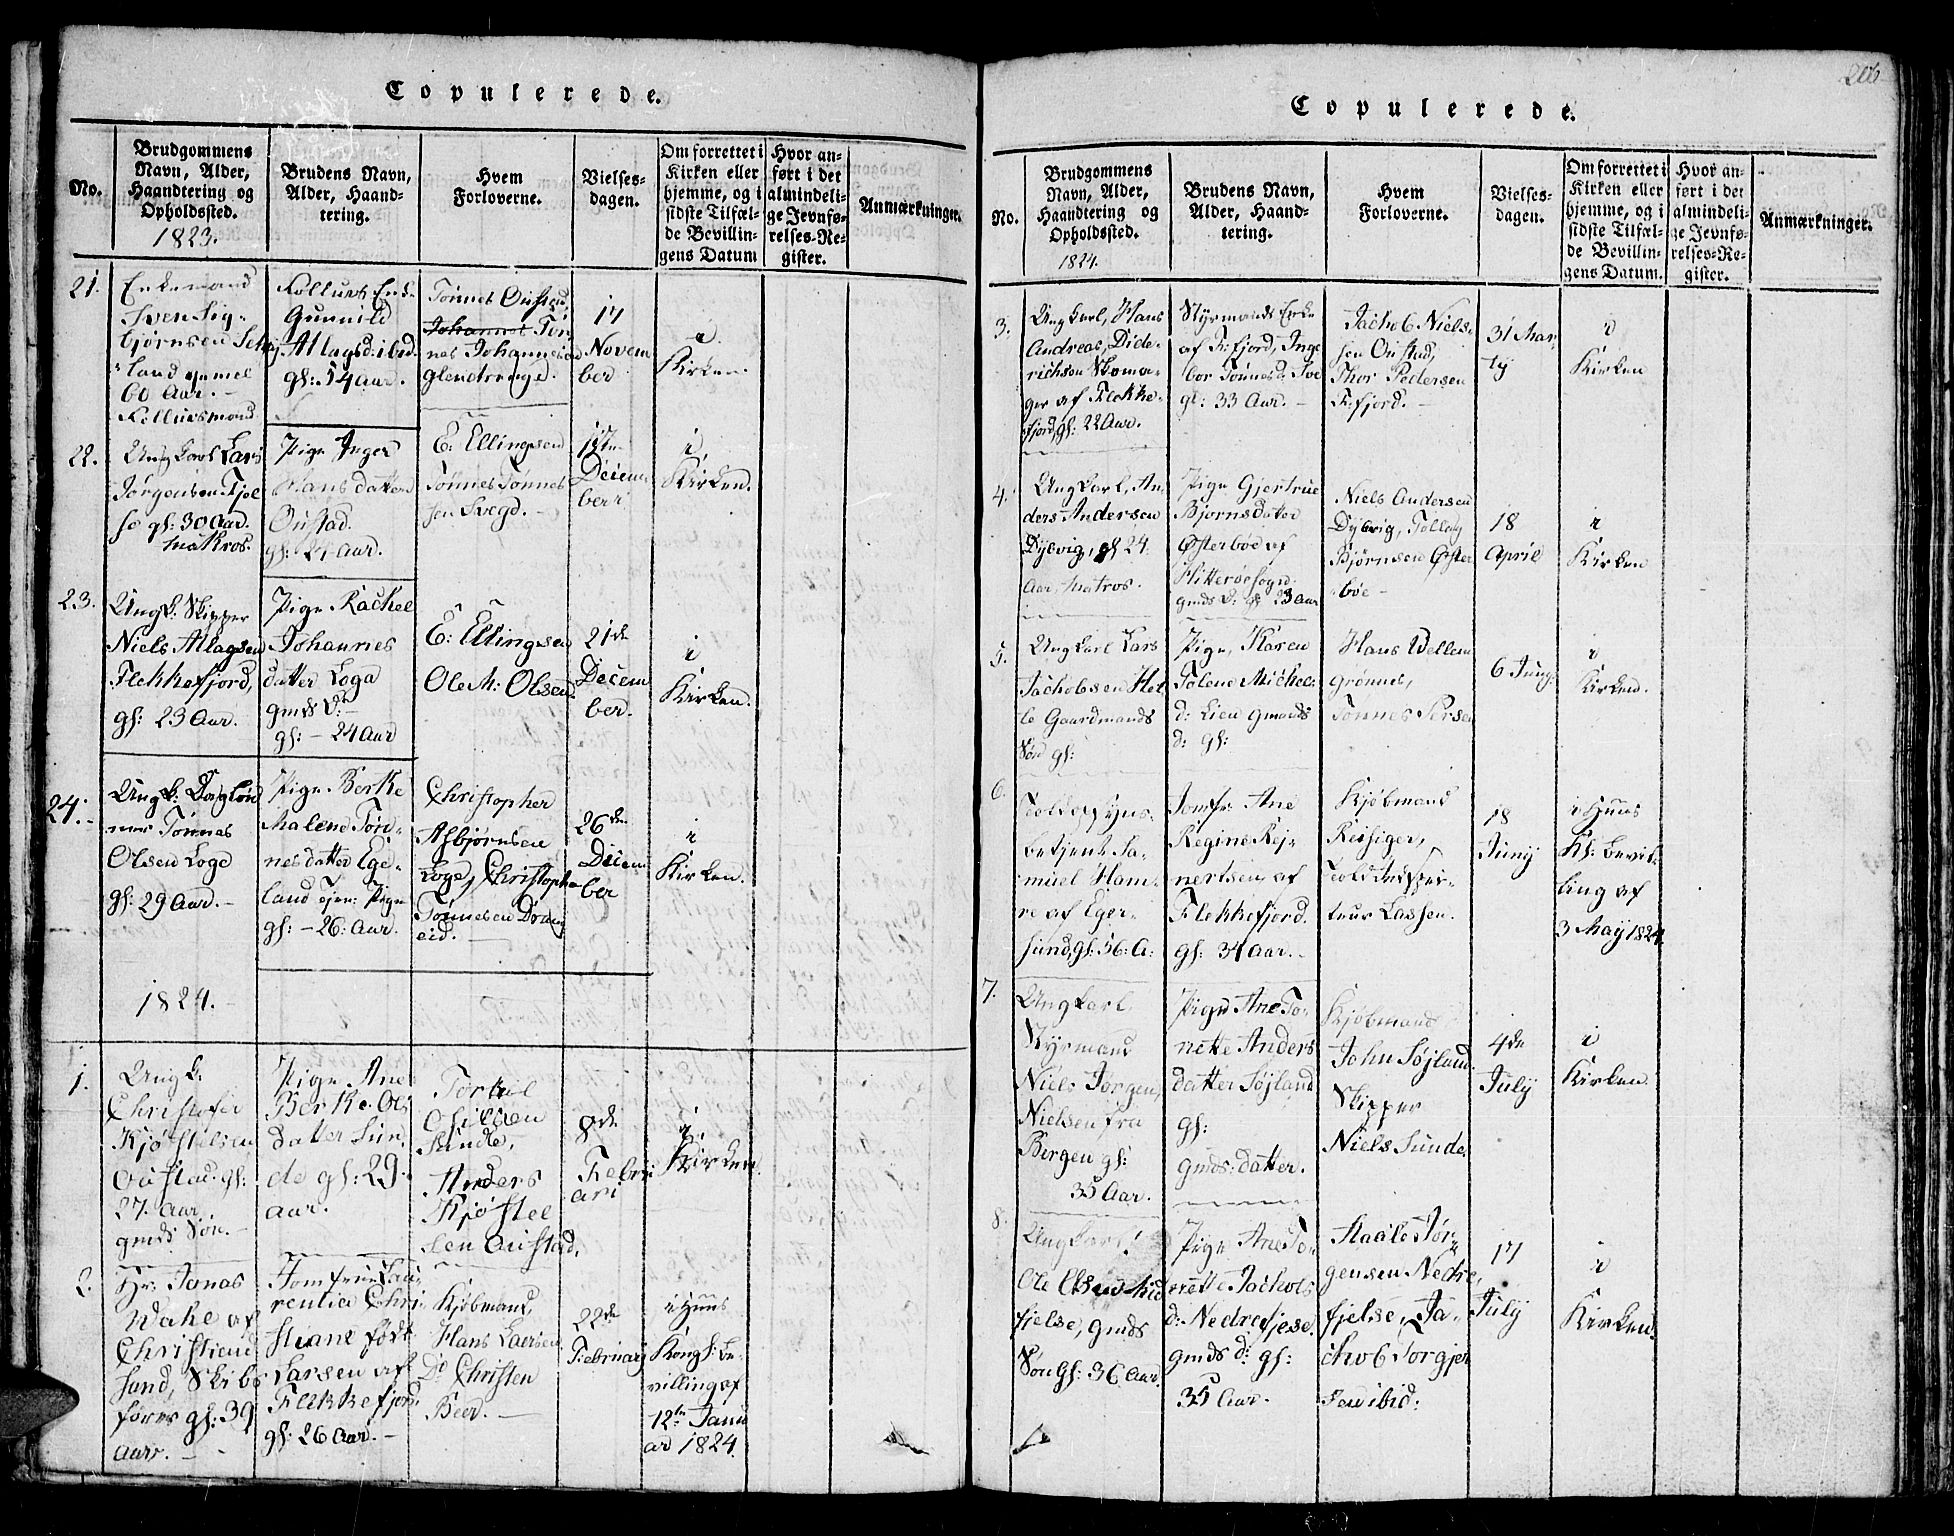 Copulerede.
No.
Brudgommens
Navn, Alder,
Haandtering og
Opholdssted.
1823.
Brudens Navn,
Alder, Haand-
tering.
Hvem
Forloverne.
Vielses-
dagen.
Om forrettet i
Kirken eller
hjemme, og i
sidste Tilfæl-
de Bevillin-
gens Datum
Hvor an-
ført i det
almindeli-
ge Jevnfø-
relses-Re-
gister.
Anmærkninger.
21.
Enkemand
Sven Sig-
bjørnsen
land gammel
60 Aar.
Enke
Gunnild
Atlagsd: ibid.
gl: 54 Aar.
Tønnes Oustad
Johannes Tøn
nes Johannesen
17
Novem
ber
i
Kirken.
22.
Ungkarl Lars
Jørgensen Fjel
se gl: 30 Aar.
Matros.
Pige Inger
Hansdatter
Oustad.
gl: 27 Aar.
E: Ellingsen
Tønnes Tønnes
sen Svegd.
Decem
ber
i
Kirken.
23.
Ungk: Skipper
Niels Atlagsen
Flekkefjord,
gl: 23 Aar.
Pige Rachel
Johannes
datter Loga
gmds D:
gl: 24 Aar
E: Ellingsen
Ole M: Olsen
21de
Decem
ber.
i
Kirken.
24.
Ungk: Dagløn
ner Tønnes
Olsen Loge
gl: 29 Aar.
Pige Berthe
Malene Tøn-
nesdatter Ege-
land tjen: Pige
gl: 26: Aar.
Christopher
Asbjørnsen
Loge, Christophe
Tønnesen Drang
eid.
26de
Decem
ber
i
Kirken.
1824.
1.
Ungk.
Christofer
Kjøstelsen
Oustad. gl:
27. Aar.
gmds Søn.
Pige Ane
Berthe Ols
datter Sun
de gl: 29.
aar.
Torkel
Sunde,
Anders
Kjøstel
sen Oustad,
8de
Febru
ari
i
Kirken.
2.
Hr: Jonas
Wahe af
Christiend
sand, Skibs
fører gl: 39
Aar.
Jomfrue Lau
rentia Chri
stiane født
Larsen af
Flekkefjord
gl: 26 Aar.
Kjøbmand,
Hans Laersen
Do Christen
Beer.
22de
Februarj
i Huus
Kongl: Be
villing af
12te Janu
ar 1824.
206
Copulerede.
No.
Brudgommens
Navn, Alder,
Haandtering og
Opholdssted.
1824.
Brudens Navn,
Alder, Haand-
tering.
Hvem
Forloverne.
Vielses-
dagen.
Om forrettet i
Kirken eller
hjemme, og i
sidste Tilfæl-
de Bevillin-
gens Datum.
Hvor an-
ført i det
almindeli-
ge Jevnfø-
relses-Re-
gister.
Anmærkninger.
3.
Ungkarl, Hans
Andreas, Dide-
richsen Skoma-
ger af Flekke-
fjord, gl: 22 Aar.
Styrmands Enke
af F:fjord, Inge
bor Tønnesd: Sve
gl: 33 Aar.
Jachob Niels-
sen Oustad,
Thor Pedersen
F:fjord.
31 Mar
ty
i
Kirken
4.
Ungkarl, An
ders Andersen
Dybvig, gl 24
Aar, Matros.
Pige Gjertrue
Bjørnsdatter
Østerbøe af
Hitterøe Sogn.
gmds D: gl 23 Aar
Niels Andersen
Dybvig, Tollag
Bjørnsen Øster
bøe
18
April
i
Kirken
5.
Ungkarl Lars
Jachobsen Hel
le Gaardmands
Søn gl:
Pige, Karen
Talene Michel:
d: Lien gmands
d: gl:
Hans Wellem
Grønnes,
Tønnes Persen
6 Juny
i
Kirken.
6.
Toldopsyns-
betjent Sa-
muel Ham-
re af Eger-
sund, gl: 56: A.
Jomfr: Ane
Regine Rej-
nertsen, af
Flekkefjord.
gl: 34 Aar.
Kjøbmand
Reisiger,
Toldinspec-
teur Lassen.
18
Juny
i Huus
Kl: Bevil-
ling af
3 May 1824.
7.
Ungkarl
Styrmand
Niels Jørgen,
Nielsen fra
Bergen gl:
35 Aar.
Pige Ane To-
nette Anders
datter Søjland
gl:
gmds: datter.
Kjøbmand
John Søjland
Skipper
Niels Sunde.
4de
July
i
Kirken.
8.
Ungkarl
Ole Olsen Mid
fjelse, gmds
Søn gl: 36 Aar.
Pige Ane To
rette Jachobs
d: Nedrefjese.
gmds d: gl:
35 Aar.
Staale Jør-
gensen Nedre,
fjelse, Ja-
chob Torgjer
sen ibid:
17
July
i
Kirken.